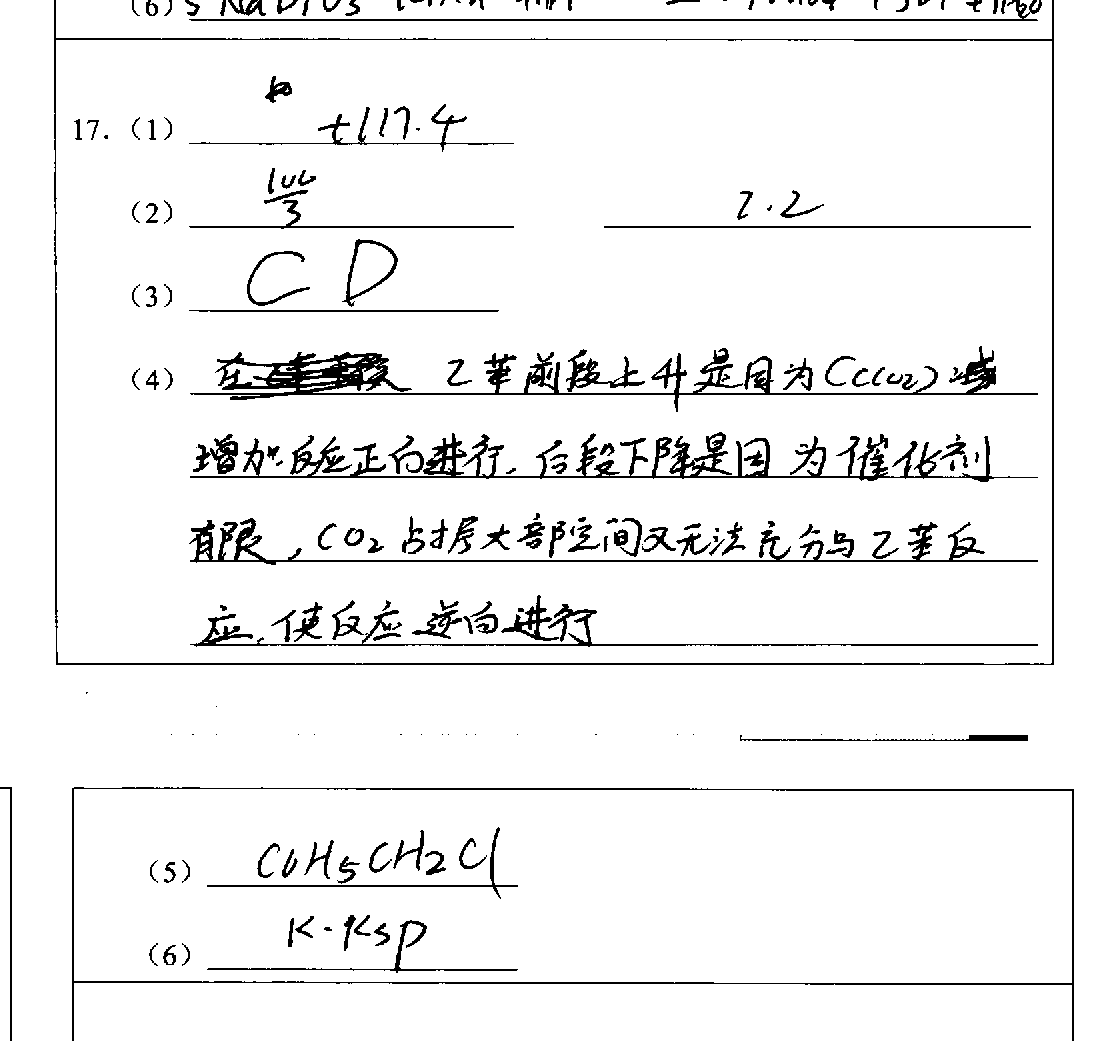 (6) 5 NaBiO₃
17. (1) +117.4
(2) 100/3 2.2
(3) C D
(4) 乙苯前段上升是因为C(CO₂)
增加.反应正向进行.后段下降是因为催化剂
有限,CO₂占据大部空间又无法充分与乙苯反
应.使反应逆向进行
(5) C6H5CH2Cl
(6) K·Ksp